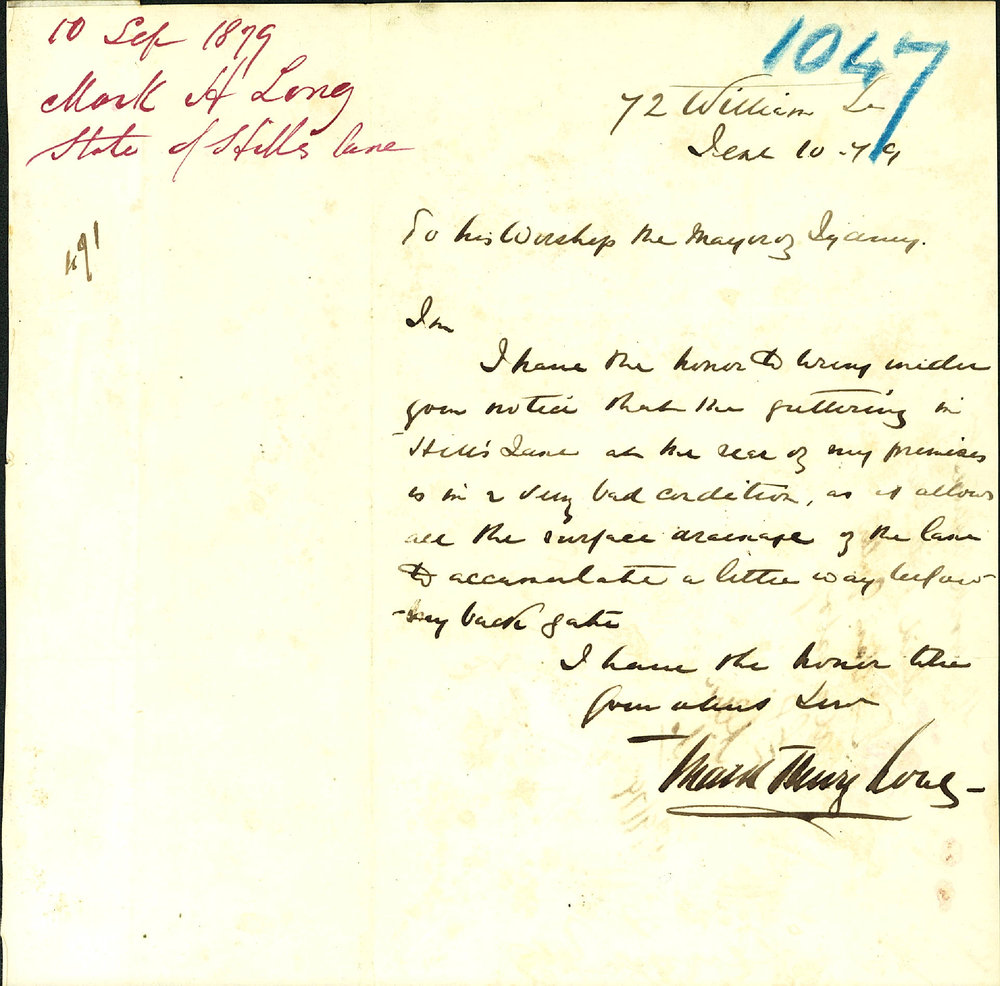 10 Sep 1879
Mark H Long
State of Hills lane
1047
72 William St
Sept 10 - 79
To his Worship the Mayor of Sydney.
Sir
I have the honor to bring under
your notice that the guttering in
Hill's Lane at the rear of my premises
is in a very bad condition, as it allows
all the surface drainage of the lane
to accumulate a little way below
my back gate
I have the honor to be
Your obedt Servt
Mark Henry Long